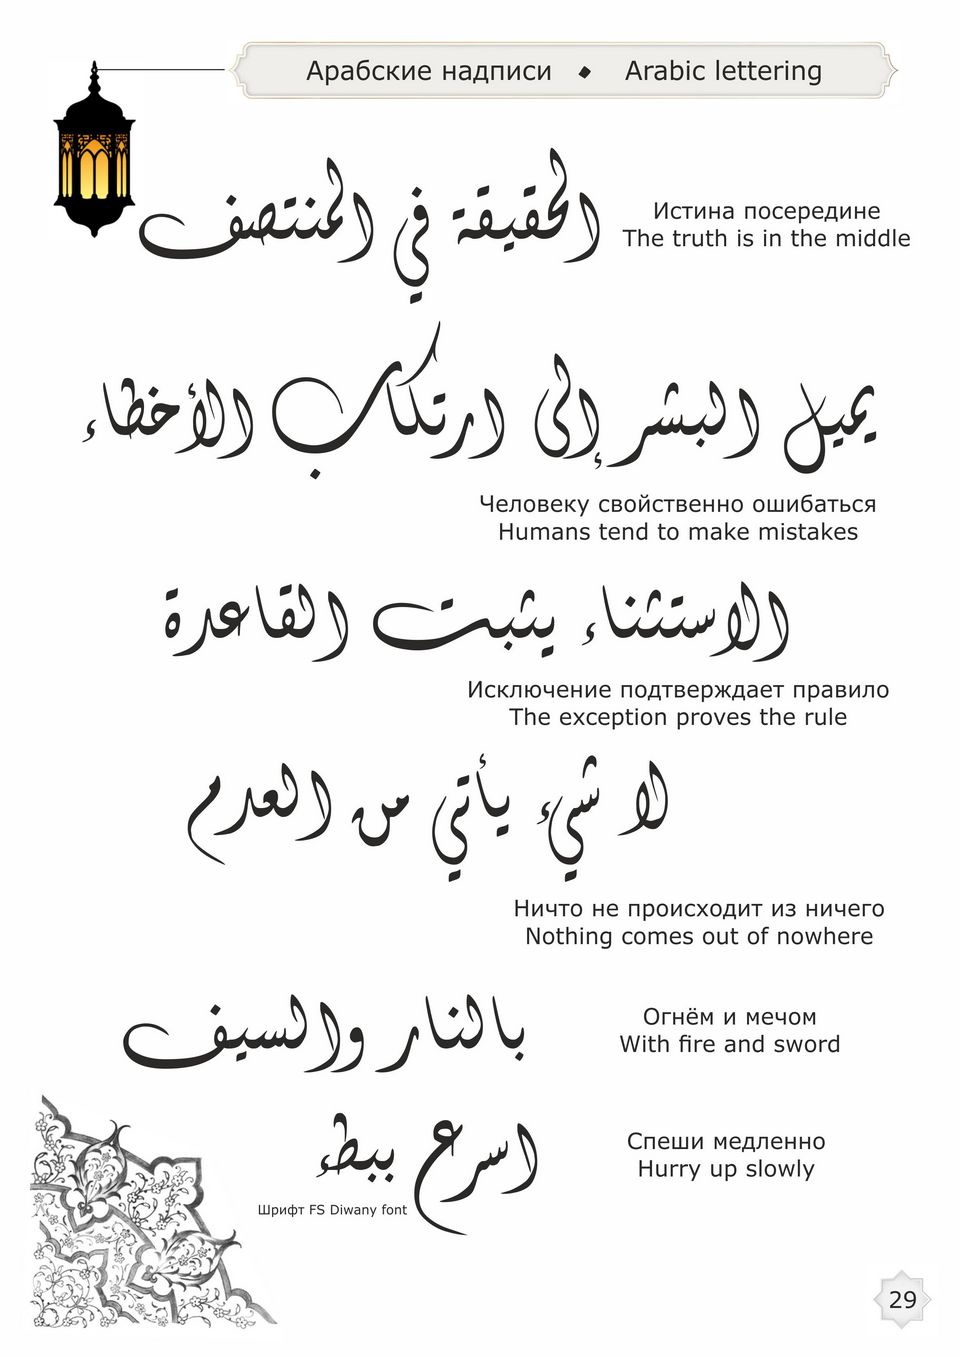 Арабские надписи ◆ Arabic lettering
الحقيقة في المنتصف
Истина посередине
The truth is in the middle
يميل البشر إلى ارتكاب الأخطاء
Человеку свойственно ошибаться
Humans tend to make mistakes
الاستثناء يثبت القاعدة
Исключение подтверждает правило
The exception proves the rule
لا شيء يأتي من العدم
Ничто не происходит из ничего
Nothing comes out of nowhere
بالنار والسيف
Огнём и мечом
With fire and sword
اسرع ببطء
Спеши медленно
Hurry up slowly
Шрифт FS Diwany font
29